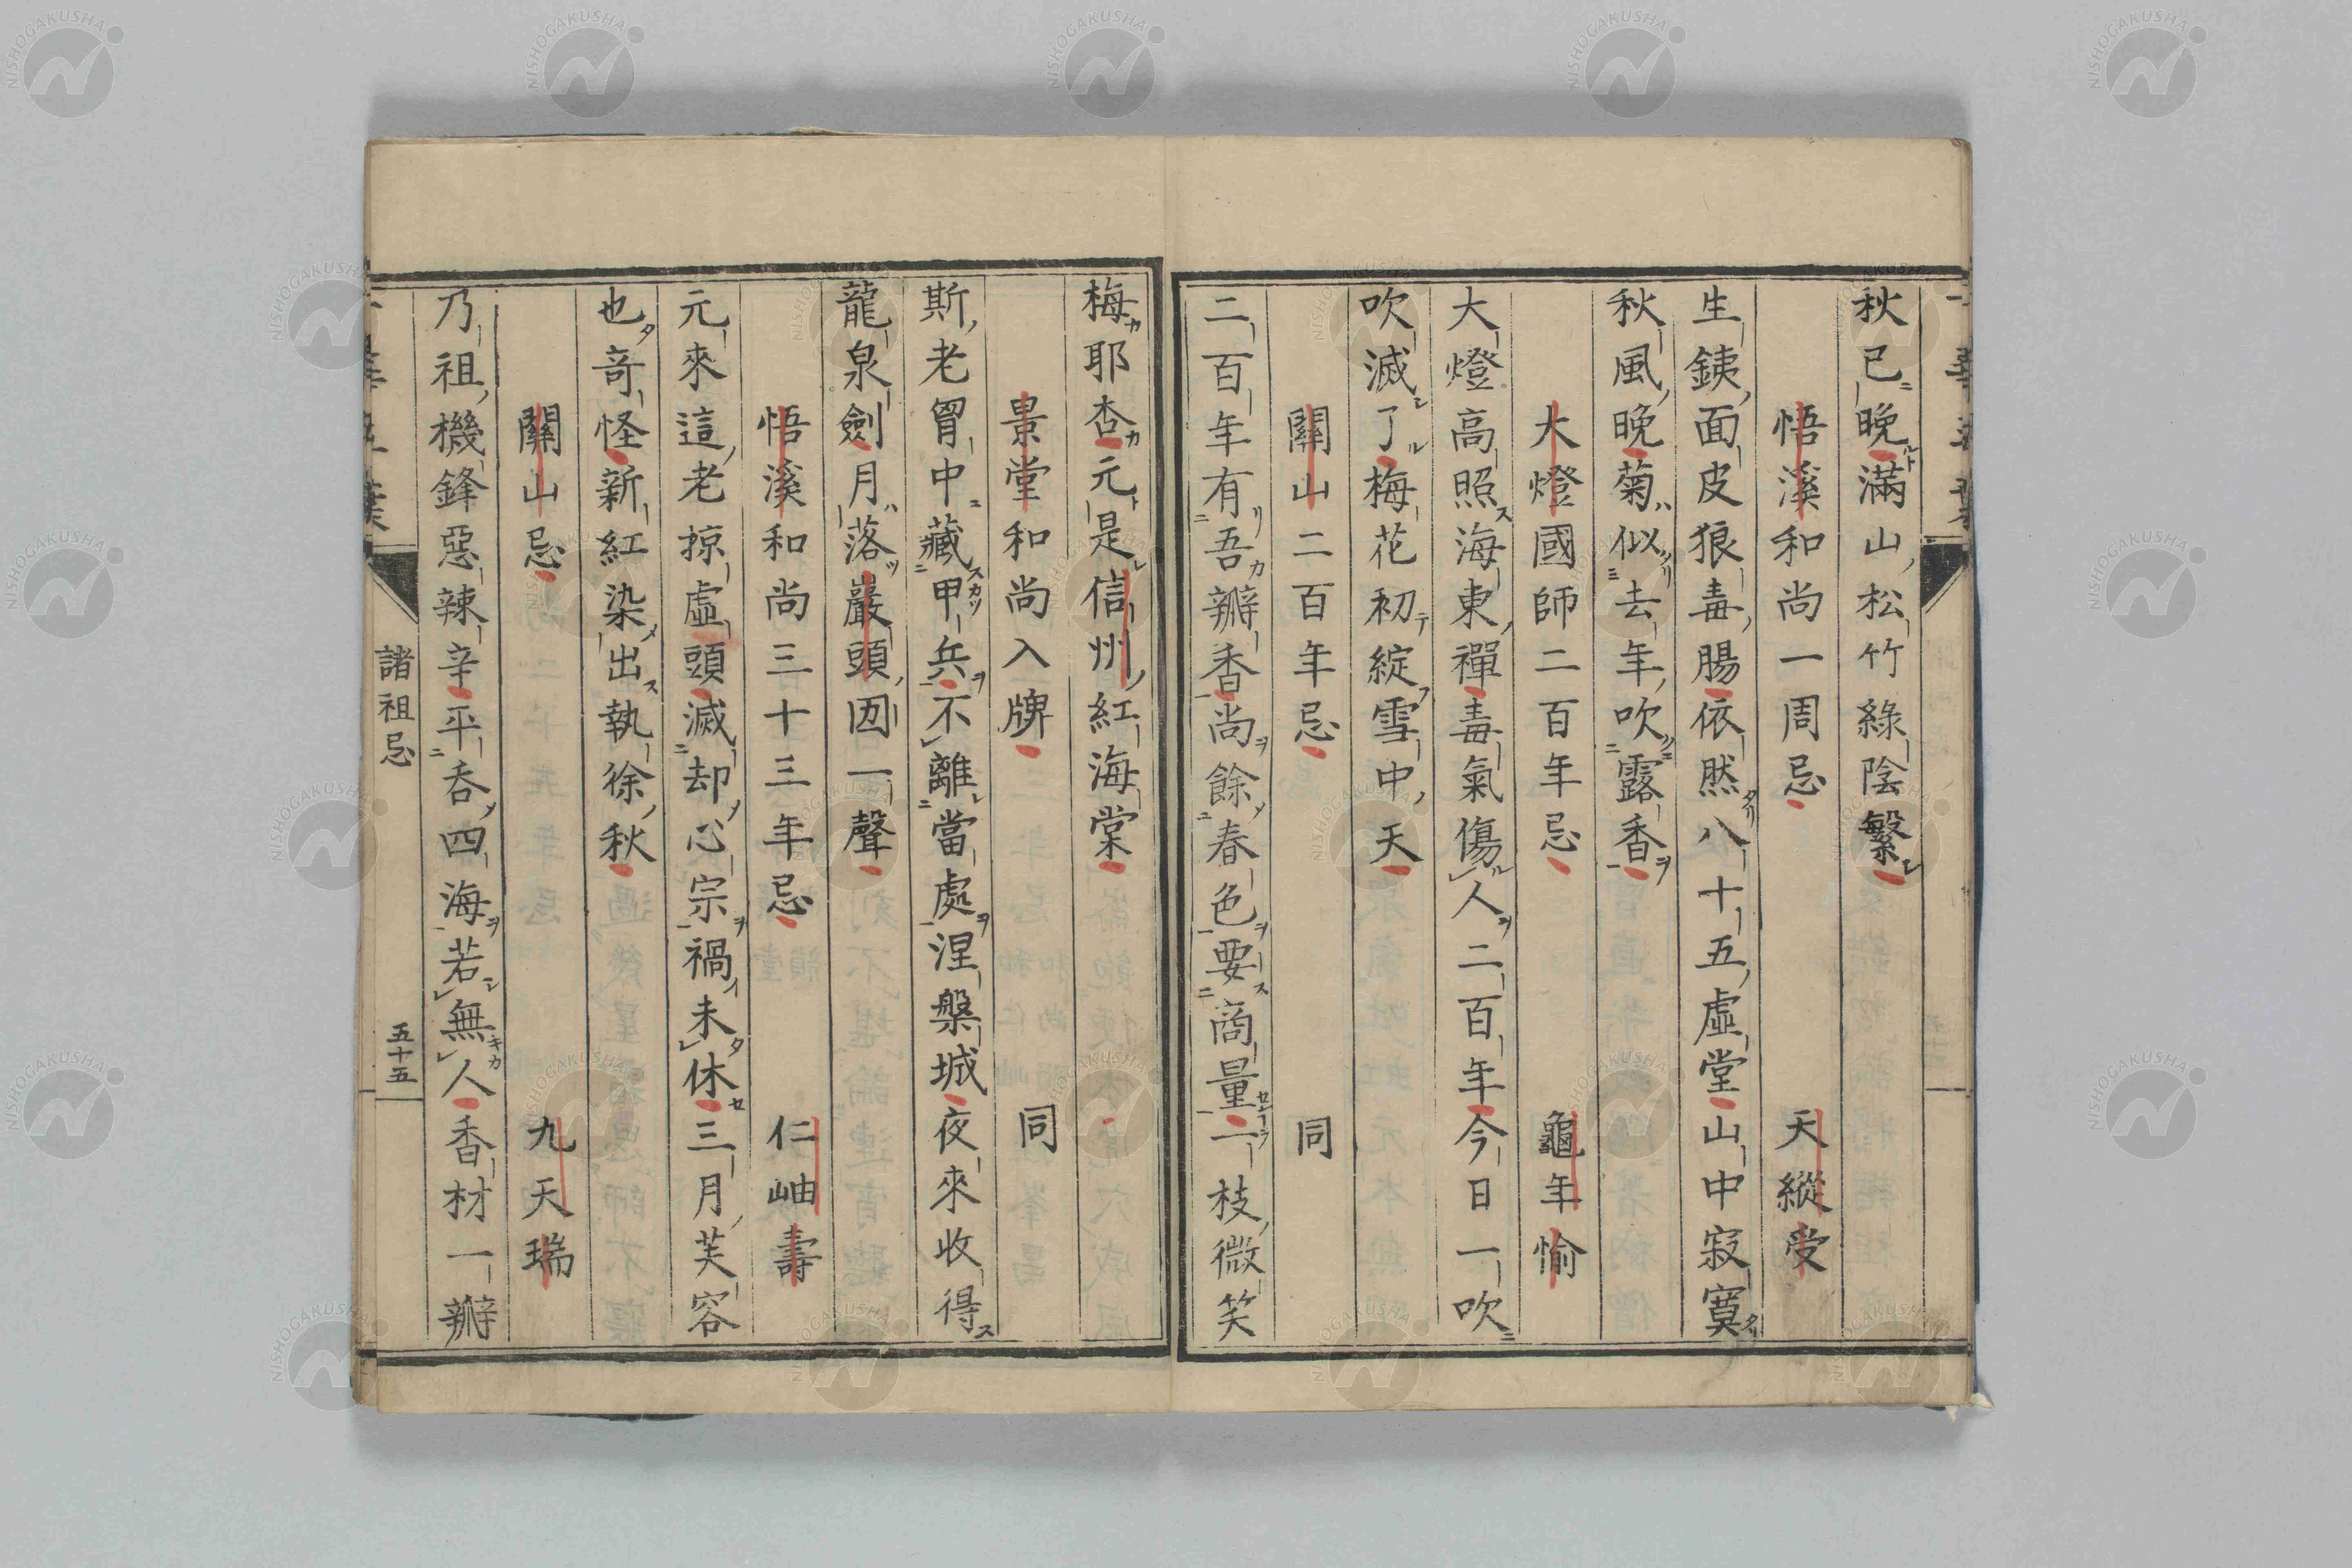 秋已晩滿山松竹綠陰繁
悟溪和尚一周忌 天縱受
生鐵面皮狼毒腸依然八十五虛堂山中寂寞
秋風晩菊似去年吹露香
大燈國師二百年忌 龜年愉
大燈高照海東禪毒氣傷人二百年今日一吹
吹滅了梅花初綻雪中天
關山二百年忌 同
二百年有吾瓣香尚餘春色要商量一枝微笑
梅耶杏元是信州紅海棠
景堂和尚入牌 同
斯老胷中藏甲兵不離當處涅槃城夜來收得
龍泉劍月落巖頭囡一聲
悟溪和尚三十三年忌 仁岫壽
元來這老掠虛頭滅却心宗禍未休三月芙容
也奇怪新紅染出執徐秋
關山忌 九天瑞
乃祖機鋒惡辣辛平吞四海若無人香材一瓣
諸祖忌 五十五
NISHOGAKUSHA